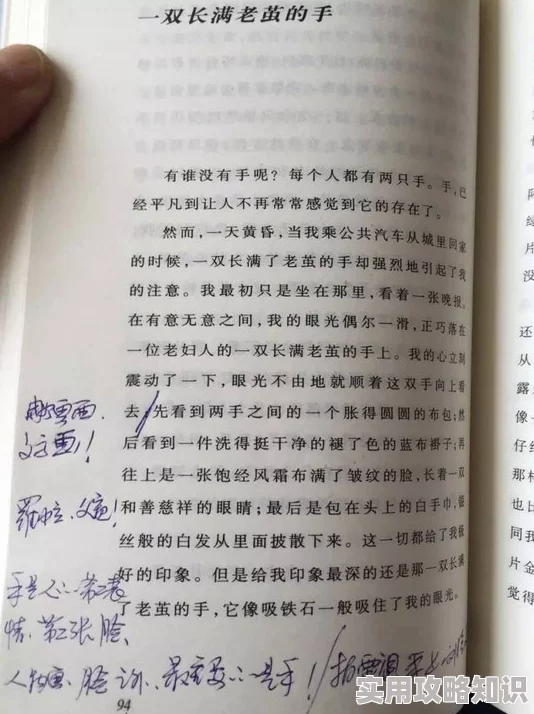 一双长满老茧的手
有谁没有手呢？每个人都有两只手。手，已
经平凡到让人不再常常感觉到它的存在了。
然而，一天黄昏，当我乘公共汽车从城里回家
的时候，一双长满了老茧的手却强烈地引起了我
的注意。我最初只是坐在那里，看着一张晚报。
在有意无意之间，我的眼光偶尔一滑，正巧落在
一位老妇人的一双长满老茧的手上。我的心立刻
震动了一下，眼光不由地就顺着这双手向上看
去，先看到两手之间的一个胀得圆圆的布包；然
后看到一件洗得挺干净的褪了色的蓝布褂子；再
往上是一张饱经风霜布满了皱纹的脸，长着一双
和善慈祥的眼睛；最后是包在头上的白手巾，银
丝般的白发从里面披散下来。这一切都给了我极
好的印象。但是给我印象最深的还是那一双长满
了老茧的手，它像吸铁石一般吸住了我的眼光。
罗中立、父亲！
手是人的第二表
情、第二张脸
人物画、脸
最重要的是手！
94
还
从
露
像
仔
那
也
同我
片金
觉得
实用攻略知识